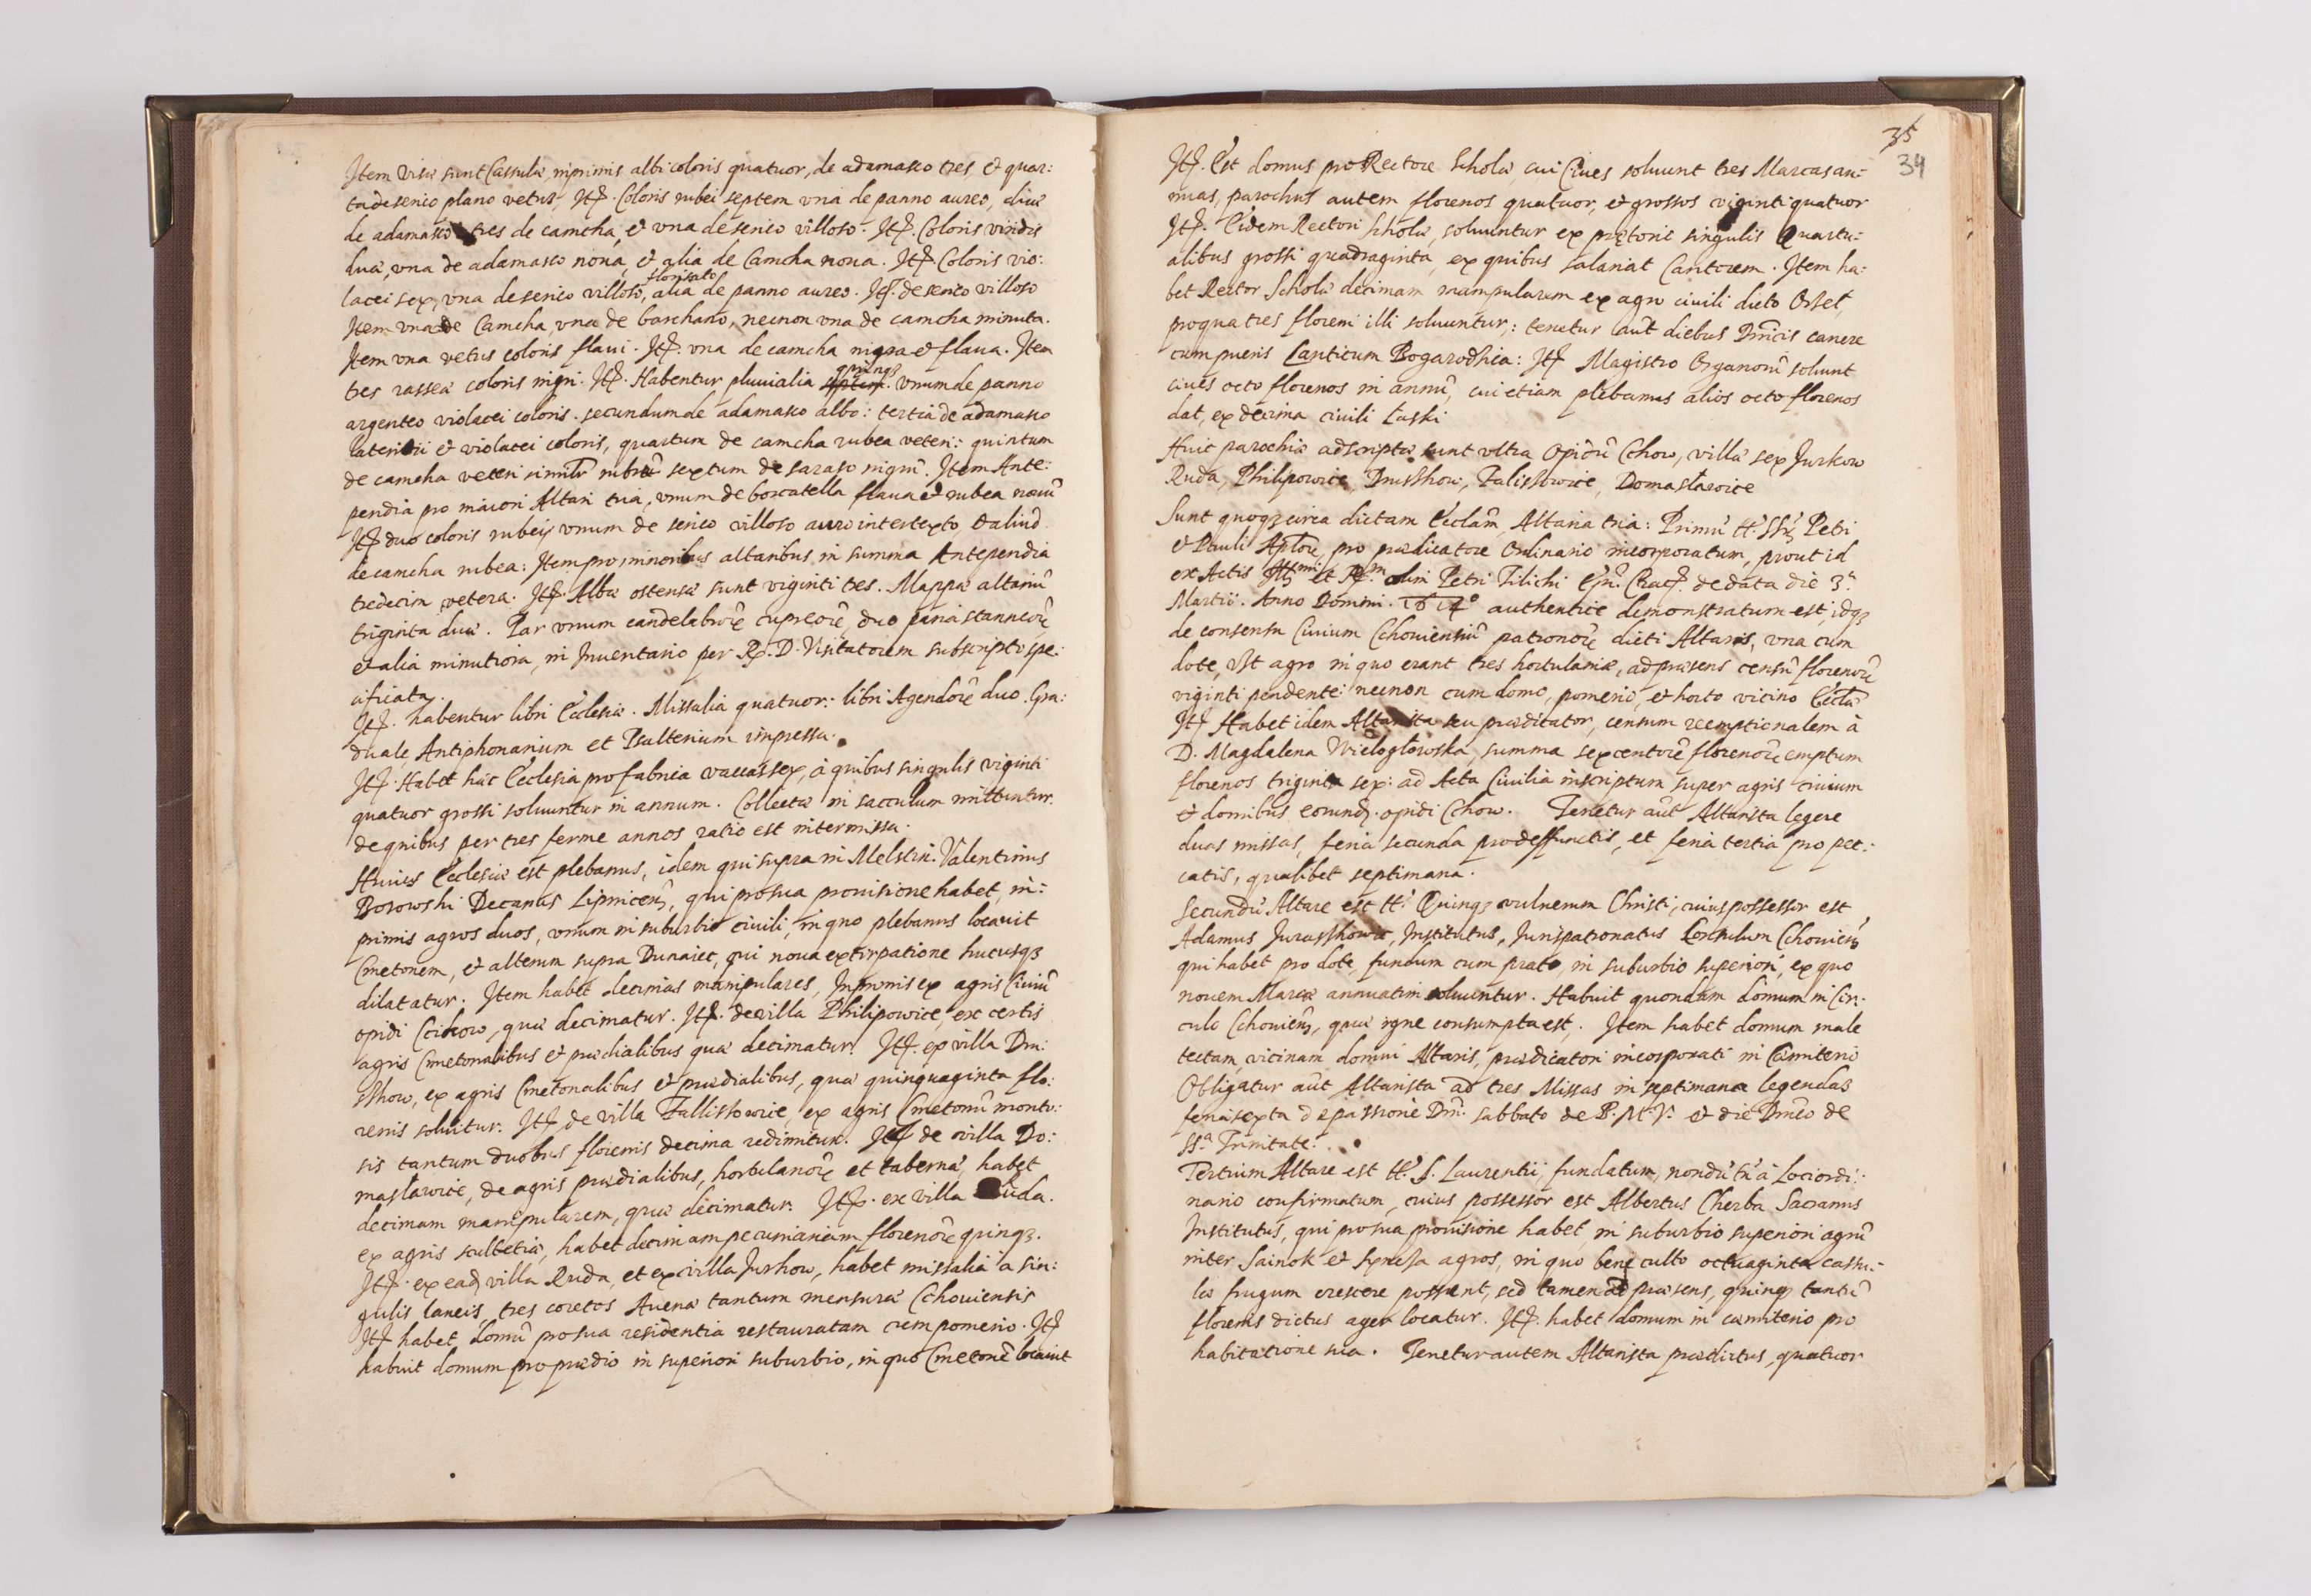 Item visæ sunt Cassulæ, inprimis albi coloris quatuor, de adamasco tres, & quar:
ta de serico plano vetus, Itẽ. Coloris rubei septem una de panno aureo, duæ
de adamasco tres de camcha, & una de serico villoso. Itẽ. Coloris viridis
duæ, una de adamasco noua, & alia de Camcha noua. Itẽ. Coloris vio:
lacei sex, una de serico villoso, florisato alia de panno aureo. Itẽ. de serico villoso
Item una de Camcha, una de barchano, necnon una de camcha minuta.
Item una vetus coloris flaui. Itẽ. una de camcha nigra & flaua. Item
tres rasseæ coloris nigri. Itẽ. Habentur pluuialia quinqȝ. unum de panno
argenteo violacei coloris. secundum de adamasco albo: tertia de adamasco
lateritii & violacei coloris, quartum de camcha rubea veteri: quintum
de camcha veteri similr̃ sextum de nigrũ. Item Ante:
pendia pro maiori Altari tria, unum de borcatella flaua & rubea nouũ
Itẽ duo coloris rubei, unum de serico villoso auro intertexto, & aliud
de camcha rubea: Item pro minoribus altaribus, in summa Antependia
tredecim vetera. Itẽ. Albæ ostensæ sunt viginti tres. Mappæ altariũ
triginta duæ. Par unum candelabrorũ cupreorũ, duo paria stanneorũ
et alia minutiora, in Inuentario per R. D. Visitatorem subscripto spe:
cificata.
Itẽ. habentur libri Ecclesiæ. Missalia quatuor: libri Agendorũ duo. Gra:
duale, Antiphonarium et Psalterium impressa.
Itẽ. Habet hæc Ecclesia pro fabrica vaccas sex, à quibus singulis viginti
quatuor grossi soluuntur in annum. Collectæ in sacculum mittuntur.
de quibus per tres ferme annos ratio est intermissa.
Huius Ecclesiæ est plebanus, idem qui supra in Melstin. Valentinus
Borowski Decanus Lipnicen̄, qui pro sua prouisione habet, in:
primis agros duos, unum in suburbio ciuili, in quo plebanus locauit
Cmetonem, et alterum supra Dunaiec, qui noua extirpatione hucusqȝ
dilatatur. Item habet decimas manipulares, Inprimis ex agris Ciuiũ
opidi Cchow, quæ decimatur. Itẽ. de villa Philipowice, ex certis
agris Cmetonalibus & prædialibus quæ decimatur. Itẽ. ex villa Dru:
show, ex agris Cmetonalibus & prædialibus, quæ quinquaginta flo:
renis soluitur. Itẽ. de villa Fallissowice, ex agris Cmetonũ montu:
sis tantum duobus florenis decima redimitur. Itẽ de villa Do:
maslawice, de agris prædialibus, hortulanorũ et tabernæ, habet
decimam manipularem, quæ decimatur. Itẽ. ex villa Ruda.
ex agris scultetiæ, habet decimam pecuniariam florenorũ quinqȝ.
Itẽ. ex ead. villa Ruda, et ex villa Jurkow, habet missalia à sin:
gulis laneis, tres coretos Auenæ tantum mensuræ Cchouiensis
Itẽ habet domũ pro sua residentia restauratam cum pomerio. Itẽ
habuit domum pro prædio in superiori suburbio, in quo Cmetonẽ locauit
35
34
Itẽ. Est domus pro Rectore Scholæ, cui Ciues soluunt tres Marcas an:
nuas, parochus autem florenos quatuor, et grossos viginti quatuor
Itẽ. Eidem Rectori Scholæ, soluuntur ex prætorio singulis Quartu:
alibus grossi quadraginta, ex quibus salariat Cantorem. Item ha:
bet Rector Scholæ decimam manipularem ex agro ciuili dicto
pro qua tres floreni illi soluuntur: tenetur aũt diebus Dnĩcis canere
cum pueris Canticum Bogarodhica: Itẽ Magistro Organorũ soluunt
ciues octo florenos in annũ, cui etiam plebanus alios octo florenos
dat, ex decima ciuili Łaski
Huic parochiæ adscriptæ sunt ultra Opidũ Cchow, villæ sex Jurkow
Ruda, Philipowice, Drusshow, Falissowice, Domaslawice
Sunt quoqȝ circa dictam Ecclam̃, Altaria tria: Primũ tt. SS. Petri
& Pauli Aplorũ, pro prædicatore Ordinario incorporatum, prout id
ex Actis Illmi et Rm̃ olim Petri Tilichi Epĩ. Crac̃. de data die 3ª
Martii. Anno Domini. 1614º authentice demonstratum est, idqȝ
de consensu Ciuium Cchouiensiũ patronorũ dicti Altaris, una cum
dote, Est agro in quo erant tres hortulaniæ, ad præsens censũ florenorũ
viginti pendente: necnon cum domo, pomerio, et horto vicino Ecclæ
Itẽ Habet idem Altarista seu prædicator, censum reemptionalem à
D. Magdalena Wieloglowska, summa sexcentorũ florenorũ emptum
florenos triginta sex: ad Acta Ciuilia inscriptum super agris ciuium
& domibus eorund. opidi Cchow. Tenetur aũt Altarista legere
duas missas, feria secunda pro deffunctis, et feria tertia pro pec:
catis, qualibet septimana.
Secundũ Altare est tt. Quinqȝ vulnerum Christi, cuius possessor est
Adamus Institutus, Jurispatronatus Consulum Cchouien̄
qui habet pro dote, fundum cum prato, in suburbio superiori, ex quo
nouem Marcæ annuatim soluuntur. Habuit quondam domum in Cir:
culo Cchouien̄, quæ igne consumpta est. Item habet domum male
tectam, vicinam domui Altaris, prædicatori incorporati in Cœmiterio
Obligatur aũt Altarista ad tres Missas in septimana legendas
feria sexta de passione Dnĩ. sabbato de B. M. V. & die Dnĩco de
SSª Trinitate.
Tertium Altare est tt. S. Laurentii, fundatum, nondũ tñ à Loci ordi:
nario confirmatum, cuius possessor est Albertus Cherba Sacranus
Institutus, qui pro sua prouisione habet, in suburbio superiori agrũ
inter Sainok & agros, in quo bene culto octuaginta cassu:
læ frugum crescere possent, sed tamen ad præsens, quinqȝ tantũ
florenis dictus ager locatur. Itẽ. habet domum in cœmiterio pro
habitatione sua. Tenetur autem Altarista prædictus, quatuor